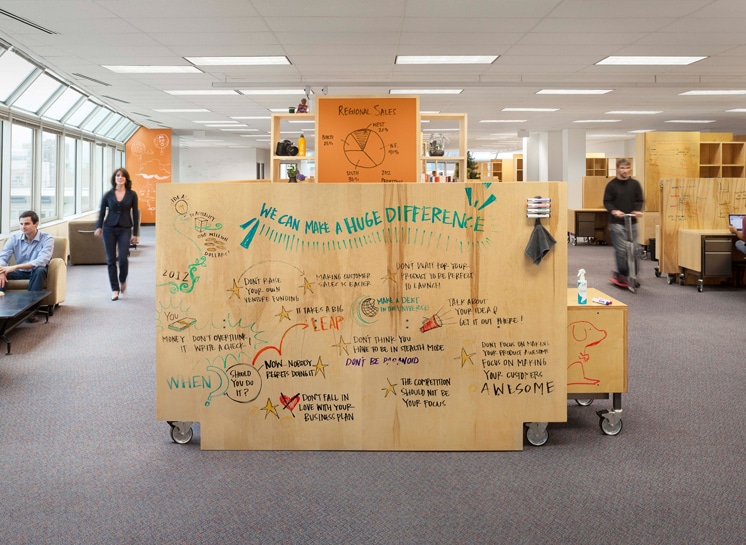 REGIONAL SALES
WEST
20%
N.E.
WE CAN MAKE A HUGE DIFFERENCE
IDEA
ONE MILLION
DOLLARS!
2012
DON'T RAISE
YOUR OWN
VENTURE FUNDING
MAKING CUSTOMER
SALES IS EASIER
DON'T WAIT FOR YOUR
PRODUCT TO BE PERFECT
TO LAUNCH!
IT TAKES A BIG
LEAP
MAKE A DENT
IN THE UNIVERSE
TALK ABOUT
YOUR IDEA &
GET IT OUT THERE!
YOU
MONEY. DON'T OVERTHINK
IT. WRITE A CHECK.
DON'T THINK YOU
HAVE TO BE IN STEALTH MODE
DON'T BE PARANOID
DON'T FOCUS ON MAKING
YOUR PRODUCT AWESOME
FOCUS ON MAKING
YOUR CUSTOMERS
AWESOME
WHEN
SHOULD
YOU DO
IT?
NOW. NOBODY
REGRETS DOING IT
DON'T FALL IN
LOVE WITH YOUR
BUSINESS PLAN
THE COMPETITION
SHOULD NOT BE
YOUR FOCUS